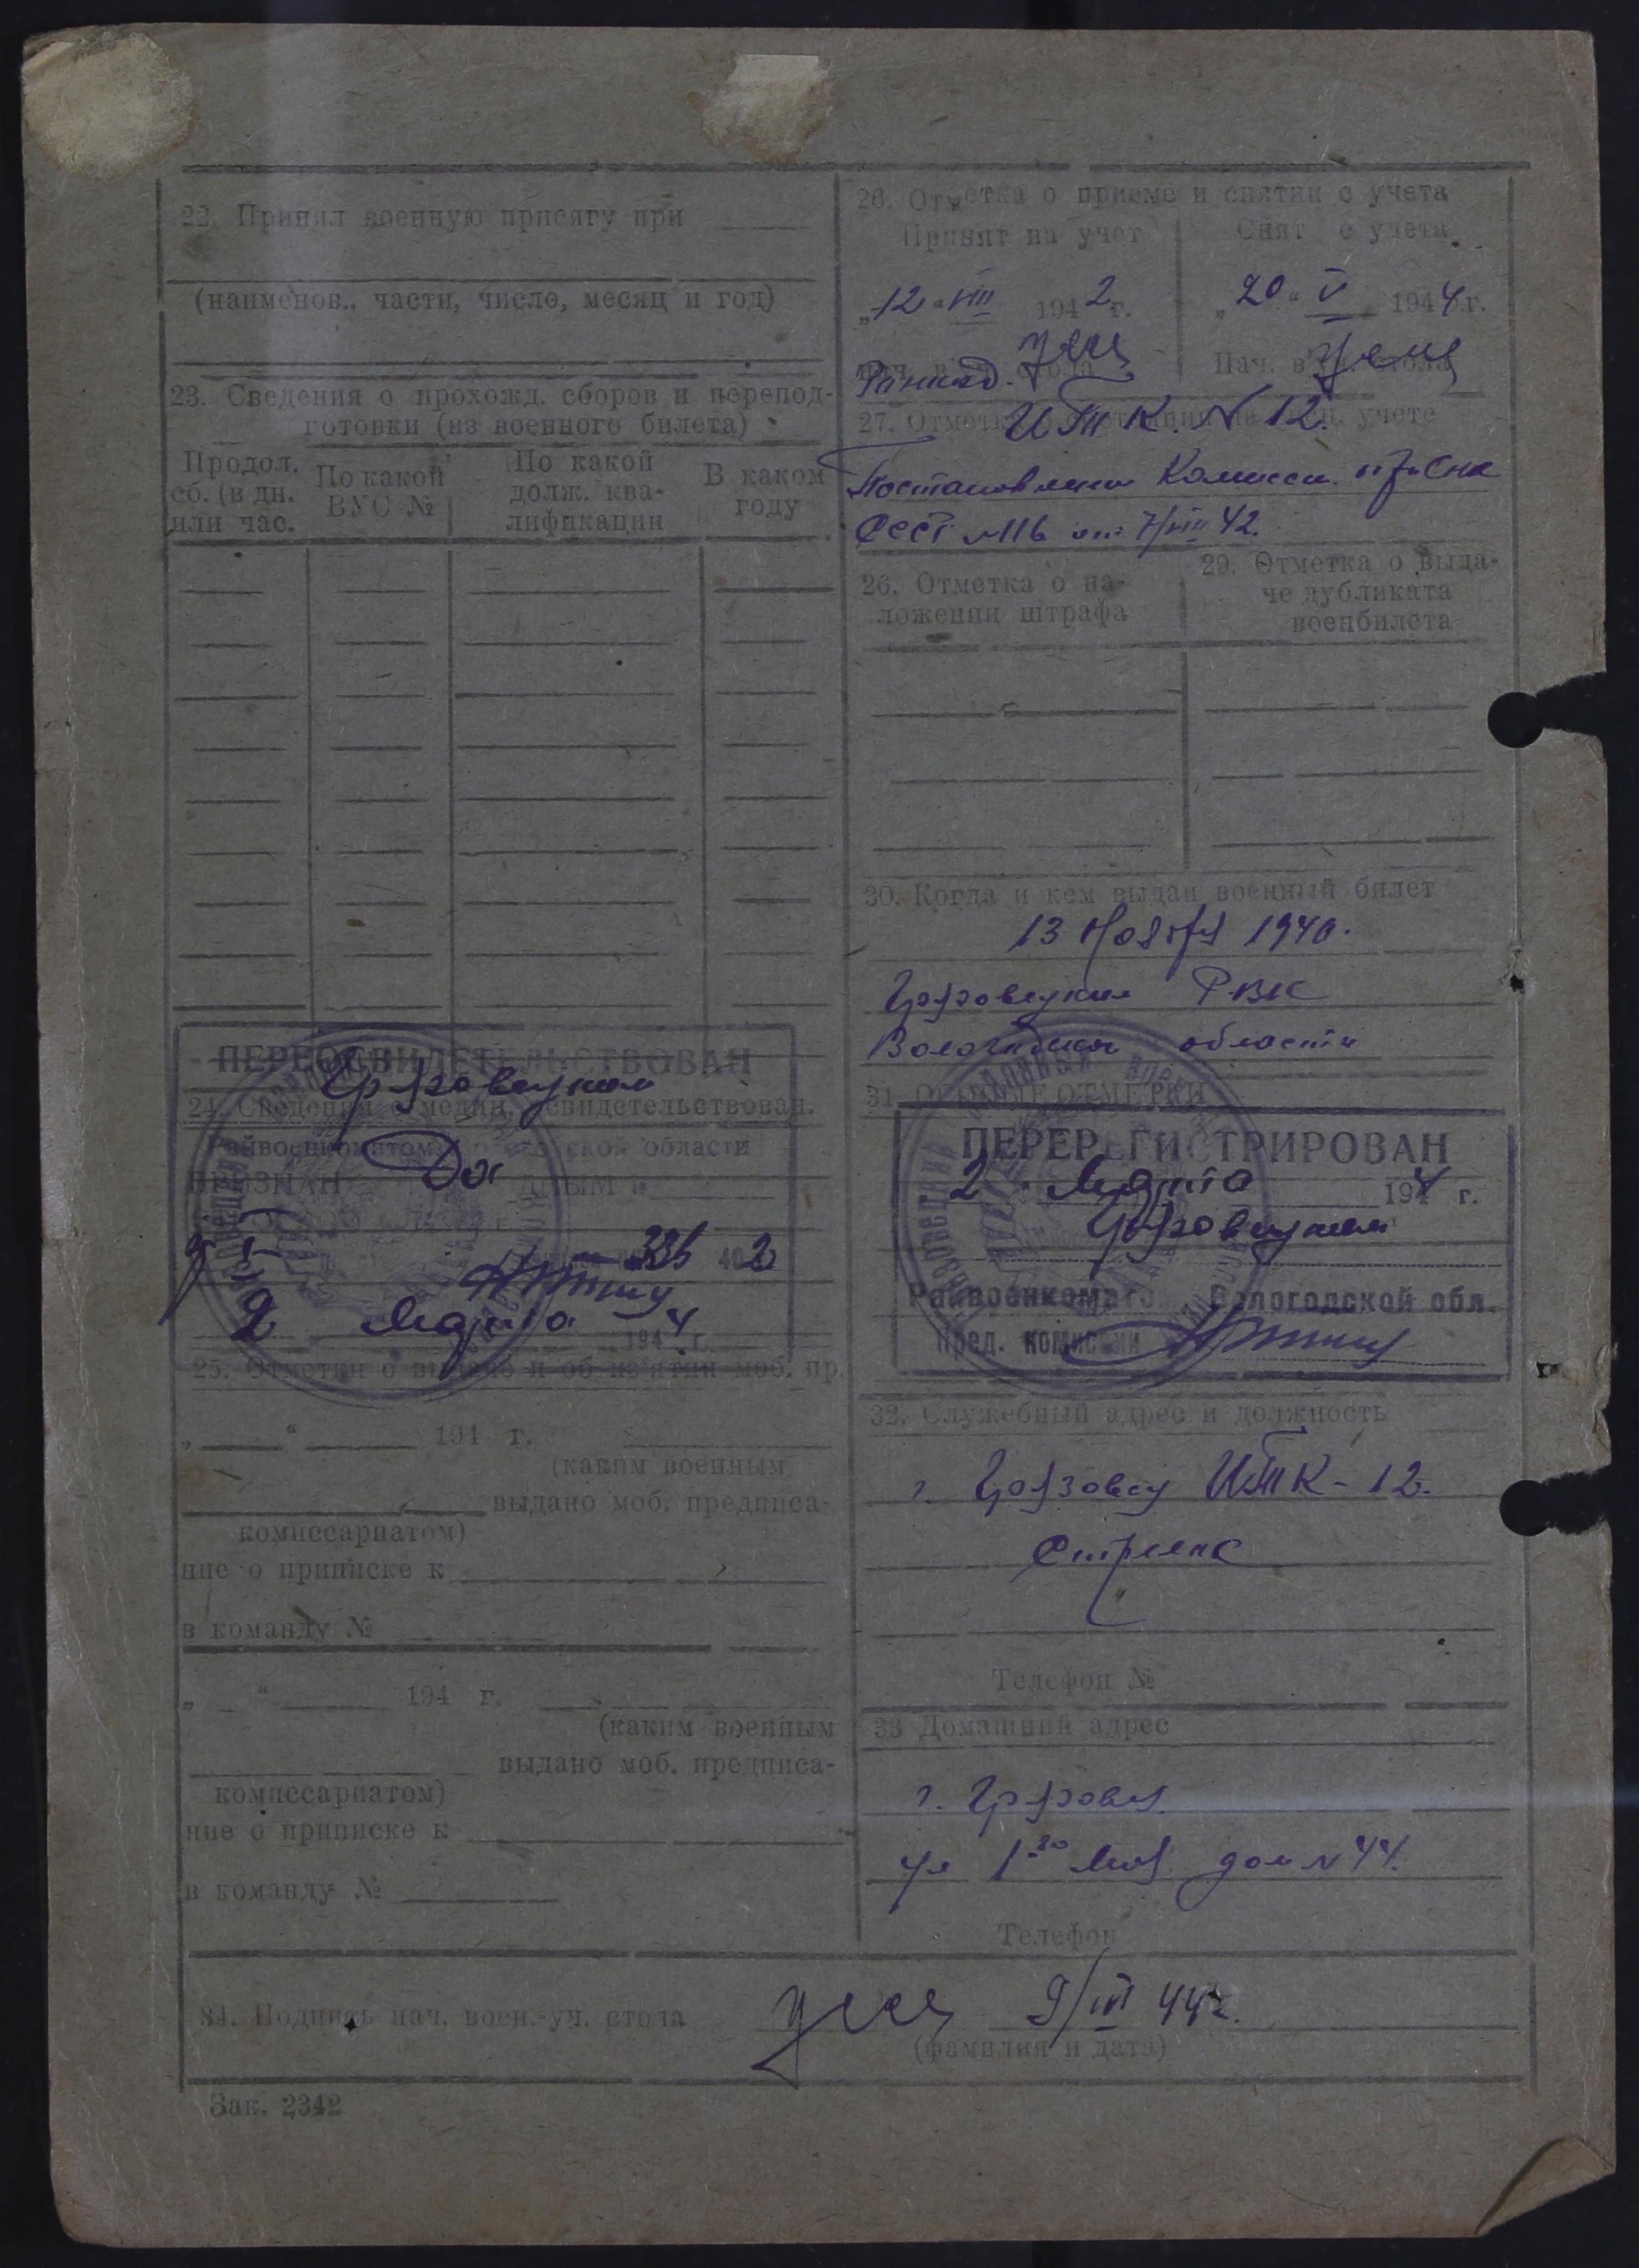 22. Принял военную присягу при
(наименов., части, число, месяц и год)
23. Сведения о прохожд. сборов и перепод-
готовки (из военного билета)
Продол.
сб. (в дн.
или час.
По какой
ВУС №
По какой
долж. ква-
лификации
В каком
году
ПЕРЕОСВИДЕТЕЛЬСТВОВАН
Грязовецким
24. Сведения о медиц. освидетельствован.
Райвоенкоматом ской области
ПРИЗНАН
336 2
2 Марта 1944 г.
25. Отметки о выдаче и об из'ятии моб. пр.
„ “ 194 г.
(каким военным
выдано моб. предписа-
комиссариатом)
ние о приписке к
в команду №
„ “ 194 г.
(каким военным
выдано моб. предписа-
комиссариатом)
ние о приписке к
в команду №
26. Отметка о приеме и снятии с учета
Принят на учет
Снят с учета
„12“ VIII 1942 г.
„20“ V 1944 г.
Нач. в уч. стола
27. Отметка на спец. учете
ИТК. N 12.
Постановление Комисси при Снк
СССР №116 от 7/VIII 42.
26. Отметка о на-
ложении штрафа
29. Отметка о выда-
че дубликата
военбилета
30. Когда и кем выдан военный билет
13 Ноября 1940.
Грязовецким РВК
Вологодской области
31. ОСОБЫЕ ОТМЕТКИ
ПЕРЕРЕГИСТРИРОВАН
2 Марта 1944 г.
Грязовецким
Райвоенкомато Вологодской обл.
Пред. комиссии
32. Служебный адрес и должность
г. Грязовец ИТК-12.
Стрелок
Телефон №
33 Домашний адрес
г. Грязовец
ул 1-го Мая дом N 44.
Телефон
34. Подпись нач. воен.-уч. стола
9/VI 44г.
(фамилия и дата)
Зак. 2342